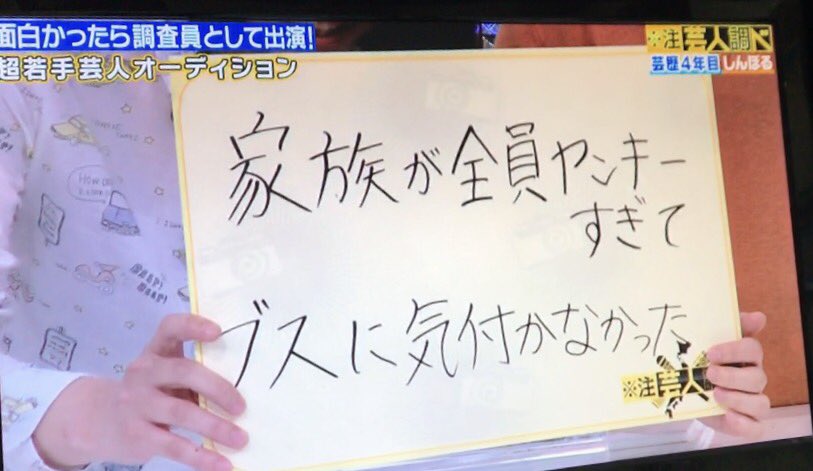 面白かったら調査員として出演!
超若手芸人オーディション
※注芸人調べ
芸歴4年目 しんぼる
家族が全員ヤンキー
すぎて
ブスに気付かなかった
※注芸人